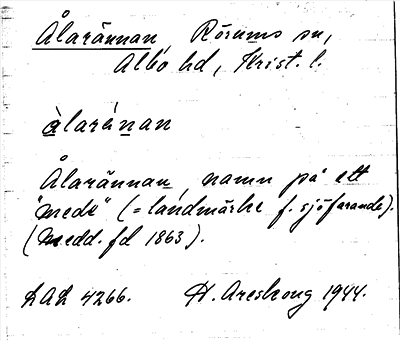 Ålarännan, Rörums sn,
Albo hd, Krist. l.
àlarànan
Ålarännan, namn på ett
"meds" (= landmärke f. sjöfarande).
(Medd. fd 1863).
LAL 4266. H. Areskoug 1944.